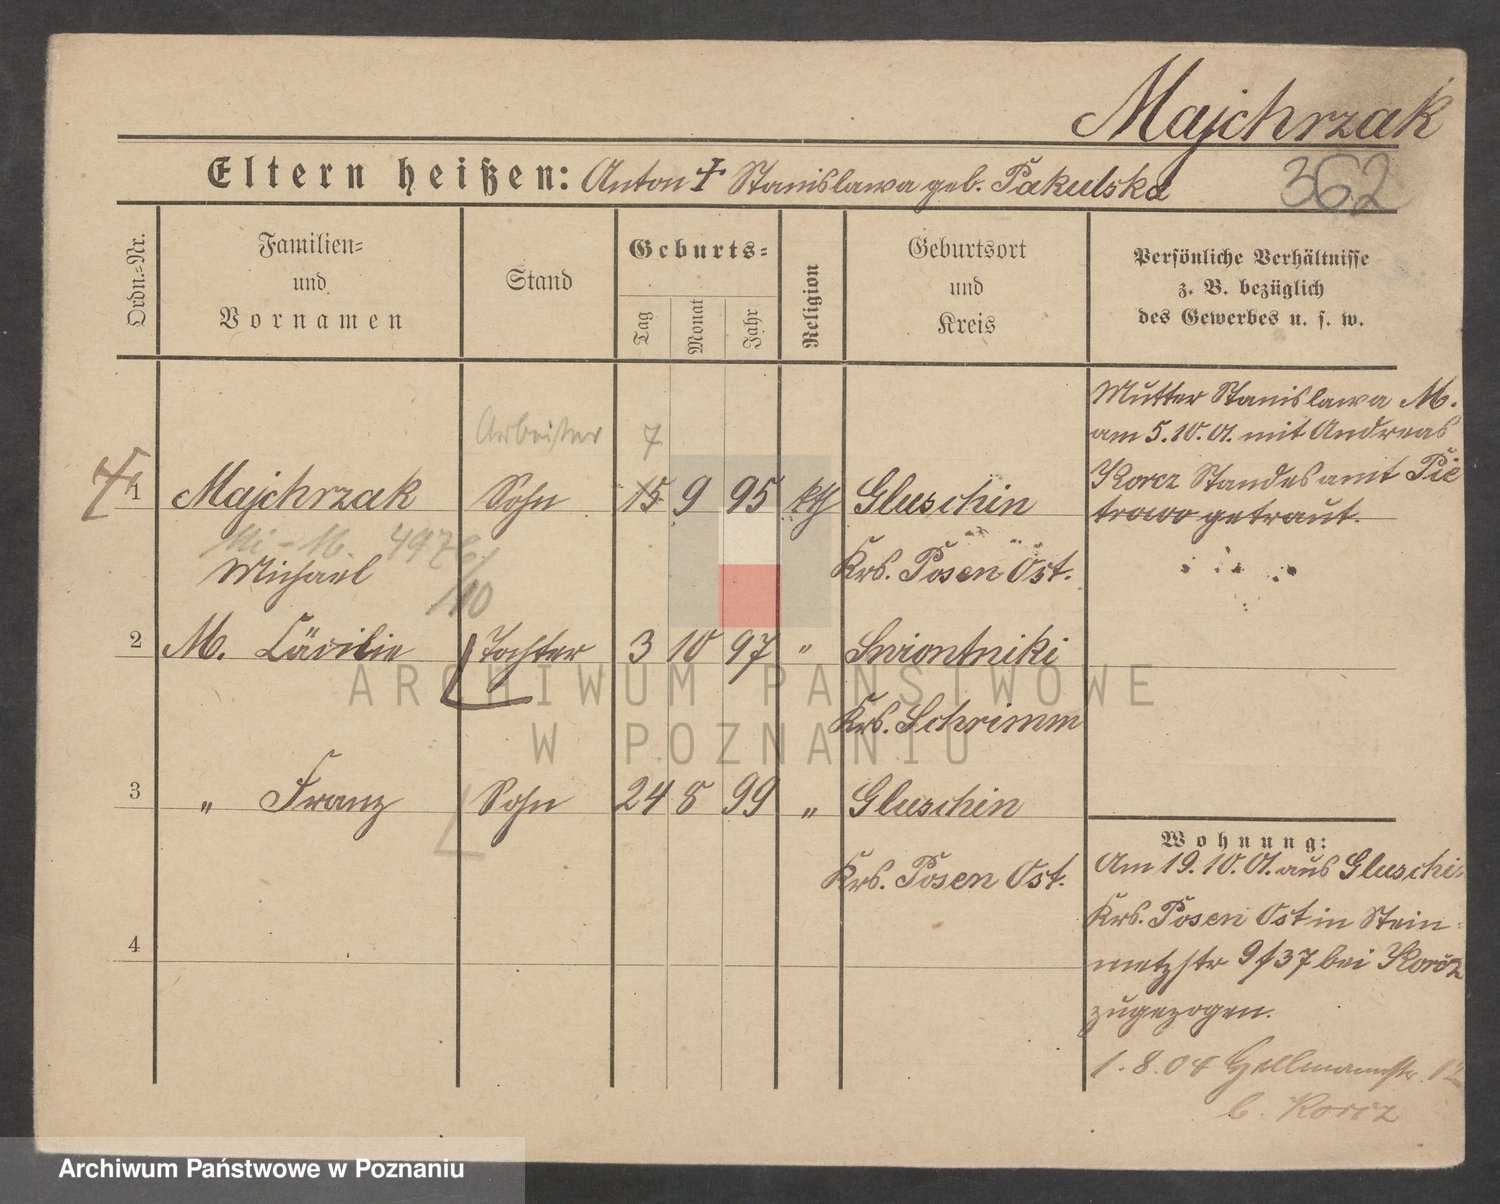 Majchrzak
362
Eltern heißen: Anton † Stanislawa geb. Pakulska
Ordn.-Nr.
Familien-
und
Vornamen
Stand
Geburts-
Tag
Monat
Jahr
Religion
Geburtsort
und
Kreis
Persönliche Verhältnisse
z. B. bezüglich
des Gewerbes u. s. w.
Mutter Stanislawa M.
am 5.10.01. mit Andreas
Korcz Standesamt Pie
trowo getraut.
Arbeiter 7
1 Majchrzak Sohn 15 9 95 kth Gluschin
Mi-M. 4976/10
Michael Krs. Posen Ost.
2 M. Cäcilie Tochter 3 10 97 " Swiontniki
Krs. Schrimm
3 " Franz Sohn 24 8 99 " Gluschin
Krs. Posen Ost.
4
Wohnung:
Am 19.10.01. aus Gluschi-
Krs. Posen Ost in Stein-
metzstr 9/37 bei Korcz
zugezogen.
1.8.04 12
b. Korcz
ARCHIWUM PAŃSTWOWE
W POZNANIU
Archiwum Państwowe w Poznaniu